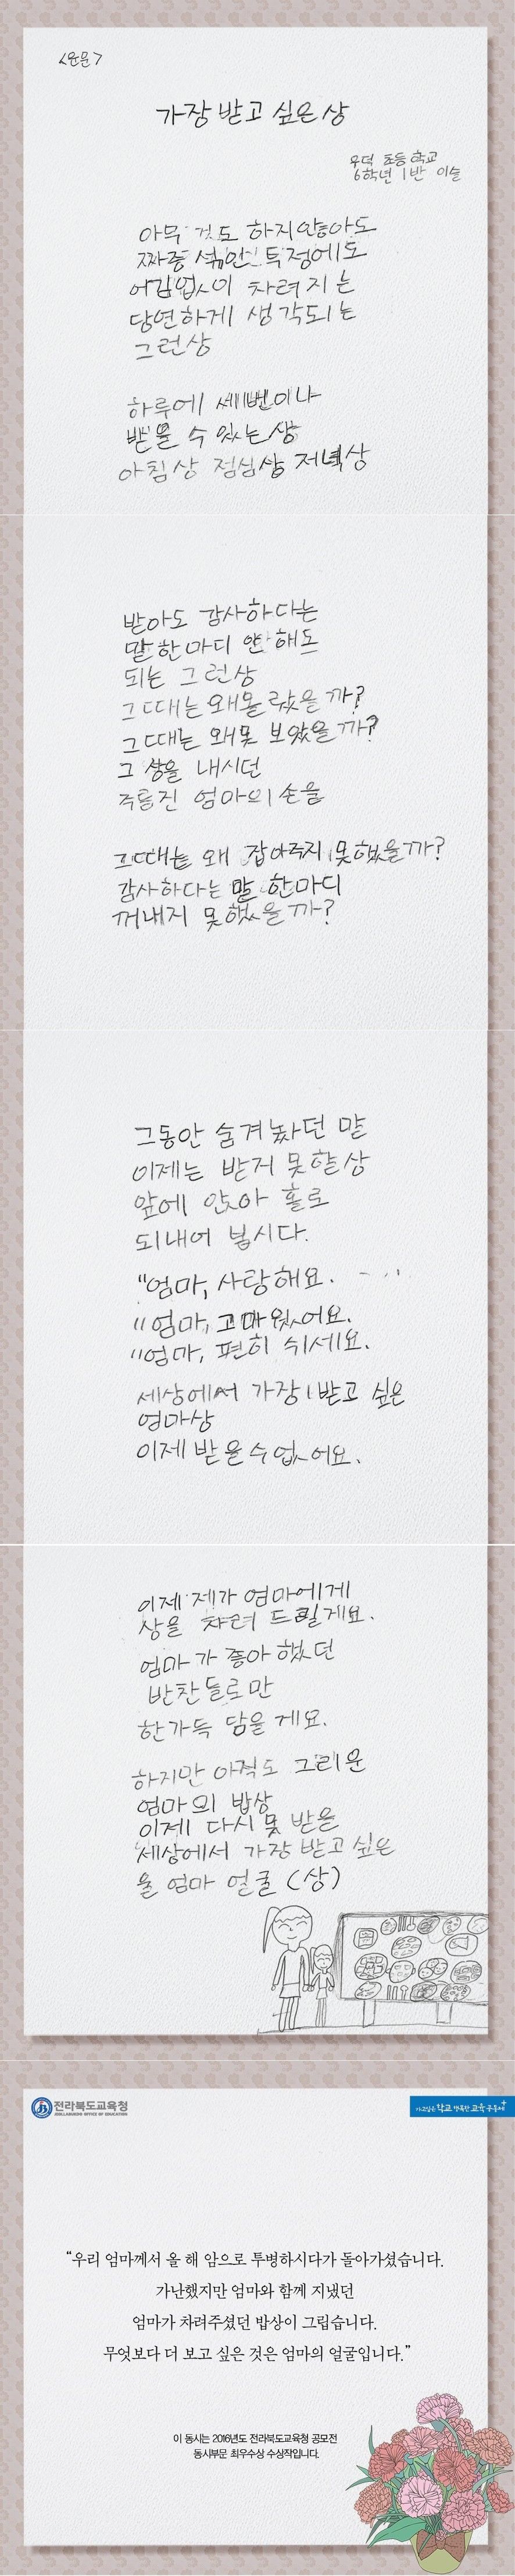 <운문>
가장 받고 싶은 상
우덕 초등학교
6학년 1반 이슬
아무 것도 하지않아도
짜증 섞인 투정에도
어김없이 차려지는
당연하게 생각되는
그런상
하루에 세번이나
받을 수 있는상
아침상 점심상 저녁상
받아도 감사하다는
말한마디 안해도
되는 그런상
그때는 왜몰랐을까?
그때는 왜못 보았을까?
그 상을 내시던
주름진 엄마의 손을
그때는 왜 잡아주지 못했을까?
감사하다는 말 한마디
꺼내지 못했을까?
그동안 숨겨놨던 말
이제는 받지 못할상
앞에 앉아 홀로
되내어 봅시다.
"엄마, 사랑해요. -...
"엄마, 고마웠어요.
"엄마, 편히 쉬세요.
세상에서 가장 받고 싶은
엄마상
이제 받을수없어요.
이제 제가 엄마에게
상을 차려 드릴게요.
엄마가 좋아했던
반찬들로만
한가득 담을게요.
하지만 아직도 그리운
엄마의 밥상
이제 다시 못 받을
세상에서 가장 받고 싶은
울 엄마 얼굴 (상)
전라북도교육청
JEOLLABUKDO OFFICE OF EDUCATION
가고싶은 학교 행복한 교육공동체
“우리 엄마께서 올 해 암으로 투병하시다가 돌아가셨습니다.
가난했지만 엄마와 함께 지냈던
엄마가 차려주셨던 밥상이 그립습니다.
무엇보다 더 보고 싶은 것은 엄마의 얼굴입니다.”
이 동시는 2016년도 전라북도교육청 공모전
동시부문 최우수상 수상작입니다.